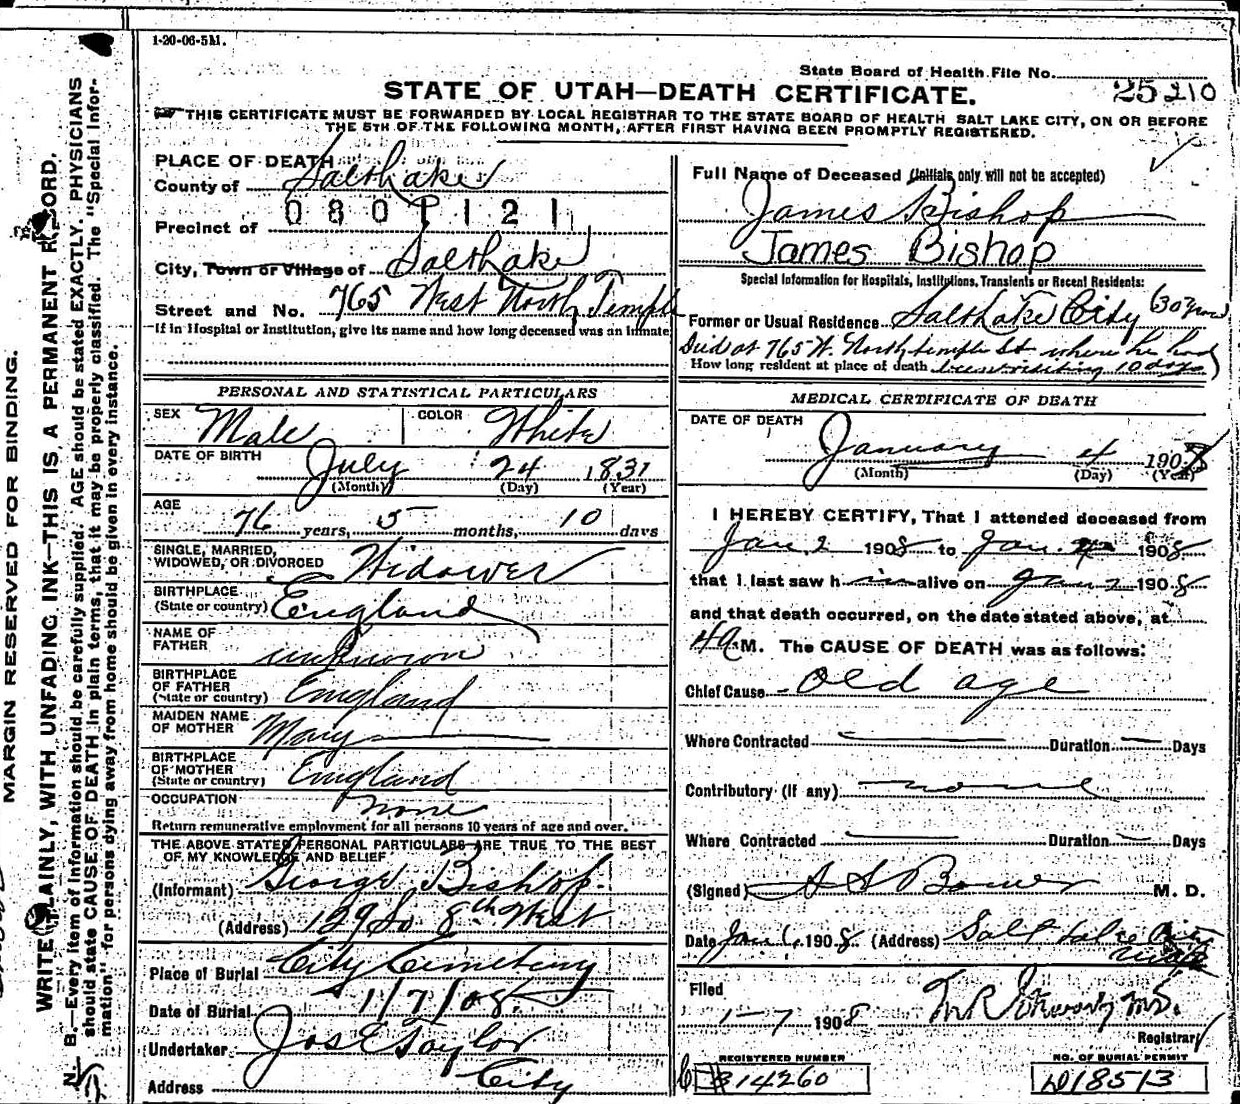 1-20-06-5M.
State Board of Health File No. 25210
STATE OF UTAH—DEATH CERTIFICATE.
THIS CERTIFICATE MUST BE FORWARDED BY LOCAL REGISTRAR TO THE STATE BOARD OF HEALTH SALT LAKE CITY, ON OR BEFORE
THE 5TH OF THE FOLLOWING MONTH, AFTER FIRST HAVING BEEN PROMPTLY REGISTERED.
MARGIN RESERVED FOR BINDING.
WRITE PLAINLY, WITH UNFADING INK—THIS IS A PERMANENT RECORD.
N. B.—Every item of information should be carefully supplied. AGE should be stated EXACTLY. PHYSICIANS
should state CAUSE OF DEATH in plain terms, that it may be properly classified. The "Special Infor-
mation" for persons dying away from home should be given in every instance.
PLACE OF DEATH
County of Salt Lake
0801121
Precinct of
City, Town or Village of Salt Lake
Street and No. 765 West North Temple
If in Hospital or Institution, give its name and how long deceased was an inmate
PERSONAL AND STATISTICAL PARTICULARS
SEX Male COLOR White
DATE OF BIRTH July 24 1831
(Month) (Day) (Year)
AGE 76 years, 5 months, 10 days
SINGLE, MARRIED,
WIDOWED, OR DIVORCED Widower
BIRTHPLACE
(State or country) England
NAME OF
FATHER unknown
BIRTHPLACE
OF FATHER
(State or country) England
MAIDEN NAME
OF MOTHER Mary
BIRTHPLACE
OF MOTHER
(State or country) England
OCCUPATION none
Return remunerative employment for all persons 10 years of age and over.
THE ABOVE STATED PERSONAL PARTICULARS ARE TRUE TO THE BEST
OF MY KNOWLEDGE AND BELIEF
(Informant) George Bishop.
(Address) 129 So 8th West
Place of Burial City Cemetery
Date of Burial 1/7/08
Undertaker Jos E Taylor
Address City
Full Name of Deceased (Initials only will not be accepted)
James Bishop
James Bishop
Special Information for Hospitals, Institutions, Transients or Recent Residents:
Former or Usual Residence Salt Lake City (30 years
Died at 765 W. North temple St where he had
How long resident at place of death been visiting 10 days)
MEDICAL CERTIFICATE OF DEATH
DATE OF DEATH
January 4 1908
(Month) (Day) (Year)
I HEREBY CERTIFY, That I attended deceased from
Jan 2 1908 to Jan. 1908
that I last saw him alive on Jan 2 1908
and that death occurred, on the date stated above, at
4 a M. The CAUSE OF DEATH was as follows:
Chief Cause Old age
Where Contracted Duration Days
Contributory (if any) none
Where Contracted Duration Days
(Signed) Bower M. D.
Date Jan 6, 1908 (Address) Salt Lake City
Utah
Filed
1-7 1908 M.D.
Registrar
REGISTERED NUMBER
14260
NO. OF BURIAL PERMIT
D18513